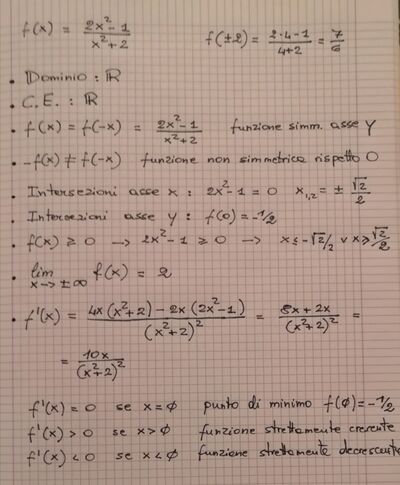 f(x) = (2x²-1)/(x²+2) f(±2) = (2·4-1)/(4+2) = 7/6
• Dominio : ℝ
• C.E. : ℝ
• f(x) = f(-x) = (2x²-1)/(x²+2) funzione simm. asse Y
• -f(x) ≠ f(-x) funzione non simmetrica rispetto O
• Intersezioni asse x : 2x²-1 = 0 x₁,₂ = ± √2/2
• Intersezioni asse y : f(0) = -1/2
• f(x) ≥ 0 → 2x²-1 ≥ 0 → x ≤ -√2/2 ∨ x ≥ √2/2
• lim x→±∞ f(x) = 2
• f'(x) = (4x(x²+2) - 2x(2x²-1))/(x²+2)² = (8x+2x)/(x²+2)² =
= 10x/(x²+2)²
f'(x) = 0 se x = ϕ punto di minimo f(ϕ) = -1/2
f'(x) > 0 se x > ϕ funzione strettamente crescente
f'(x) < 0 se x < ϕ funzione strettamente decrescente